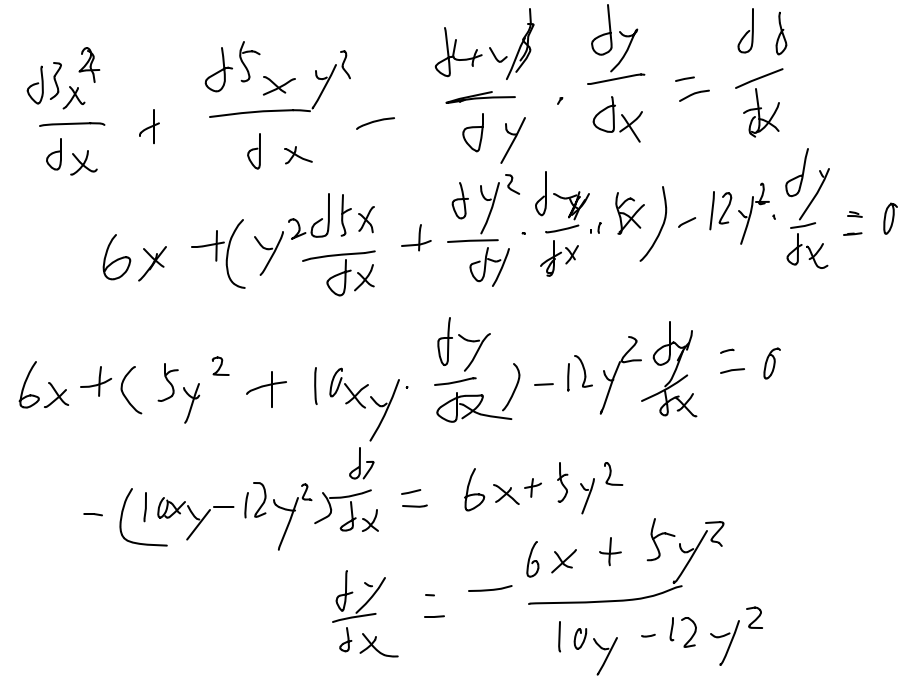 d3x²/dx + d5xy²/dx - d4y³/dy · dy/dx = d8/dx
6x + (y² d5x/dx + dy²/dy · dy/dx · 5x) - 12y² · dy/dx = 0
6x + (5y² + 10xy · dy/dx) - 12y² dy/dx = 0
-(10xy - 12y²) dy/dx = 6x + 5y²
dy/dx = - 6x + 5y² / 10y - 12y²